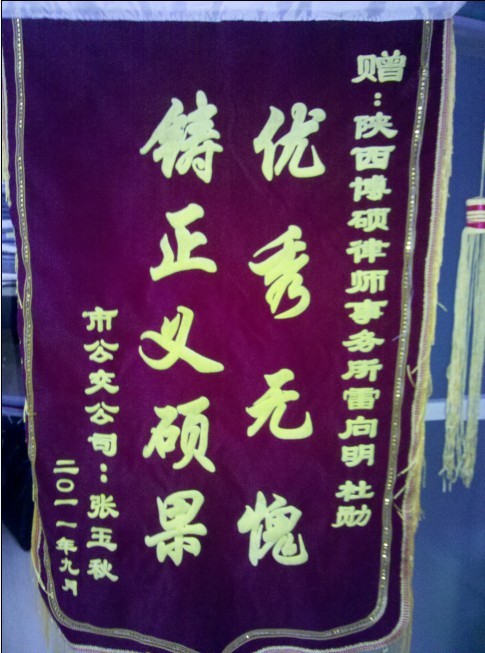 赠：陕西博硕律师事务所雷向明 杜勋
优秀无愧
铸正义硕果
市公交公司：张玉秋
二〇一一年九月